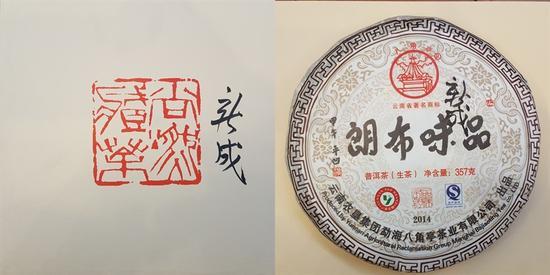 新成
云南省著名商标
新成
朗布味品
甲午
普洱茶（生茶） 净含量：357克
2014
云南农垦集团勐海八角亭茶业有限公司 出品
Produced by Yunnan Agricultural Reclamation Group Menghai Bajiaoting Tea Co.,Ltd